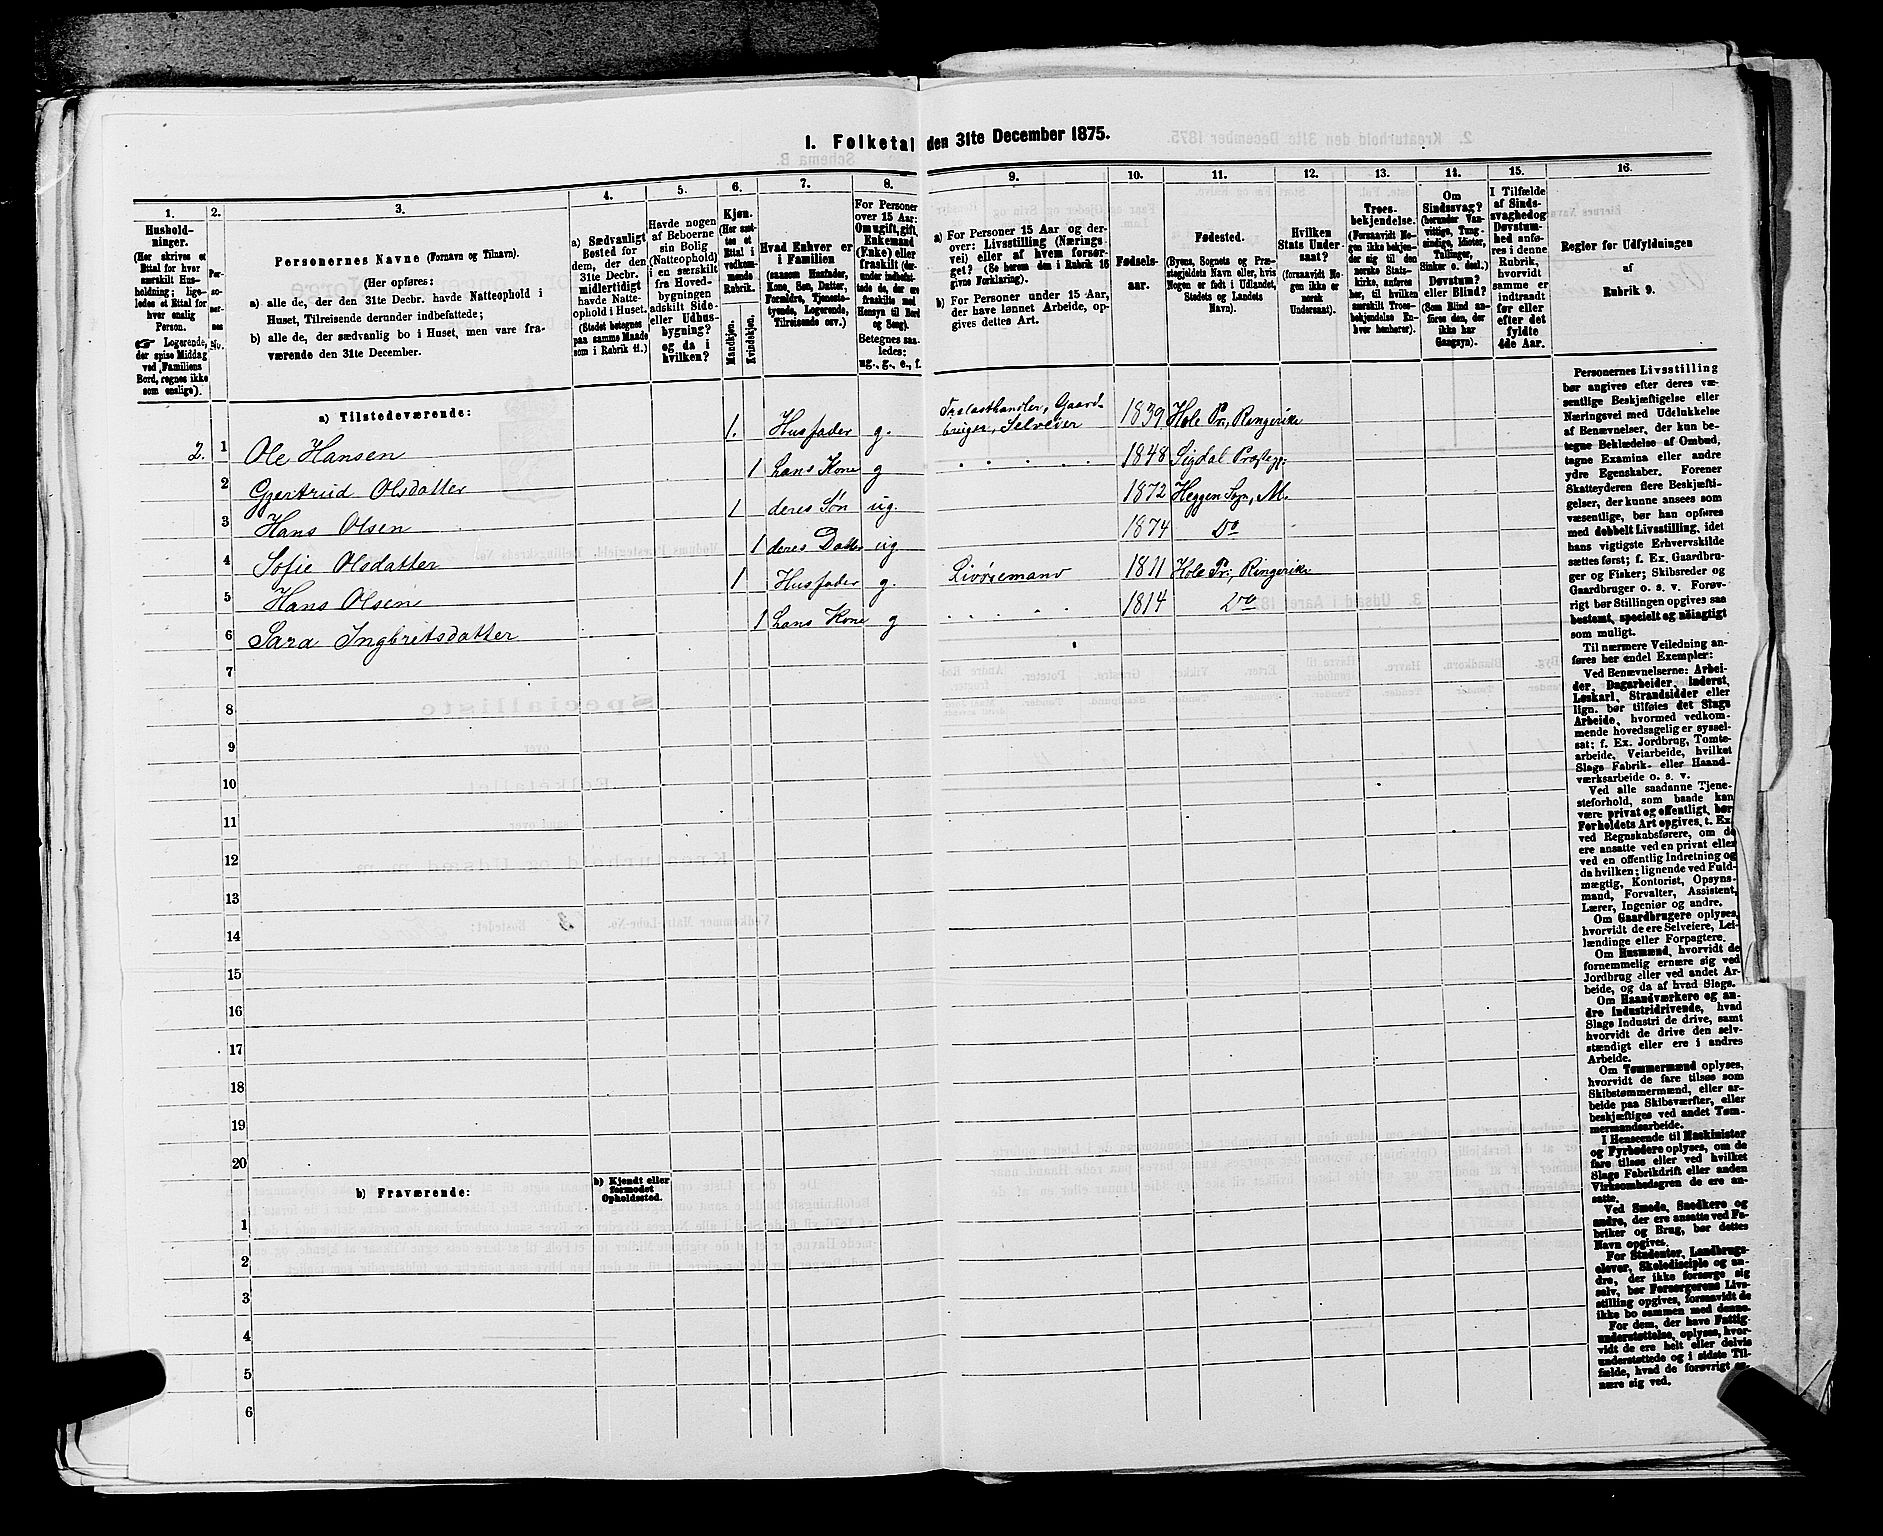 1. Folketal den 31te December 1875.
1.
Hushold-
ninger.
(Her skrives et
Ettal for hver
særskilt Hus-
holdning; lige-
ledes et Ettal for
hver enslig
Person.
☞ Logerende,
der spise Middag
ved Familiens
Bord, regnes ikke
som enslige).
2.
Per-
so-
ner-
nes
No.
3.
Personernes Navne (Fornavn og Tilnavn).
(Her opføres:
a) alle de, der den 31te Decbr. havde Natteophold i
Huset, Tilreisende derunder indbefattede;
b) alle de, der sædvanlig bo i Huset, men vare fra-
værende den 31te December.
4.
a) Sædvanligt
Bosted for
dem, der den
31te Decbr.
midlertidigt
havde Natte-
ophold i Huset.
(Stedet betegnes
paa samme Maade
som i Rubrik 11.)
5.
Havde nogen
af Beboerne
sin Bolig
(Natteophold)
i en særskilt
fra Hoved-
bygningen
adskilt Side-
eller Udhus-
bygning?
og da i
hvilken?
6.
Kjøn.
(Her sæt-
tes et
Ettal i
vedkom-
mende
Rubrik.
Mandkjøn.
Kvindekjøn.
7.
Hvad Enhver er
i Familien
(saasom Husfader,
Kone, Søn, Datter,
Forældre, Tjeneste-
tyende, Logerende,
Tilreisende osv.)
8.
For Personer
over 15 Aar:
Om ugift, gift,
Enkemand
(Enke) eller
fraskilt (der-
under indbefat-
tede de, der ere
fraskilte med
Hensyn til Bord
og Seng).
Betegnes saa-
ledes:
ug., g., e., f.
9.
a) For Personer 15 Aar og der-
over: Livsstilling (Nærings-
vei) eller af hvem forsør-
get? (Se herom den i Rubrik 16
givne Forklaring).
b) For Personer under 15 Aar,
der have lønnet Arbeide, op-
gives dettes Art.
10.
Fødsels-
aar.
11.
Fødested.
(Byens, Sognets og Præ-
stegjeldets Navn eller, hvis
Nogen er født i Udlandet,
Stedets og Landets
Navn).
12.
Hvilken
Stats Under-
saat?
(forsaavidt No-
gen ikke er
norsk
Undersaat).
13.
Troes-
bekjendelse.
(Forsaavidt No-
gen ikke bekjen-
der sig til den
norske Stats-
kirke, anføres
her, til hvilken
særskilt Troes-
bekjendelse En-
hver henhører).
14.
Om
Sindssvag?
(herunder Van-
vittige, Tung-
sindige, Idioter,
Tullinger,
Sinker o. desl.)
Døvstum?
eller Blind?
(Som Blind an-
føres den, der
ikke har
Gangsyn).
15.
I Tilfælde
af Sinds-
svaghed og
Døvstum-
hed anfø-
res i denne
Rubrik,
hvorvidt
samme er
indtraadt
før eller
efter det
fyldte
4de Aar.
16.
Regler for Udfyldningen
af
Rubrik 9.
a) Tilstedeværende:
2. 1 Ole Hansen 1. Husfader g. Trælasthandler, Gaard-
bruger, Selveier 1839 Hole Pr., Ringerike
2 Gjertrud Olsdatter 1 hans Kone g 1848 Sigdal Præstegj:
3 Hans Olsen 1 deres Søn ug. 1872 Heggen Sogn, M.
4 Sofie Olsdatter 1 deres Datter ug 1874 Do
5 Hans Olsen 1 Husfader g. Livøremand 1811 Hole Pr., Ringerike
6 Sara Ingbretsdatter 1 hans Kone g 1814 Do
7
8
9
10
11
12
13
14
15
16
17
18
19
20
b) Fraværende:
b) Kjendt eller
formodet
Opholdssted.
1
2
3
4
5
6
Personernes Livsstilling
bør angives efter deres væ-
sentlige Beskjæftigelse eller
Næringsvei med Udelukkelse
af Benævnelser, der kun be-
tegne Beklædelse af Ombud,
tagne Examina eller andre
ydre Egenskaber. Forener
Skatteyderen flere Beskjæfti-
gelser, der kunne ansees som
væsentlige, bør han opføres
med dobbelt Livsstilling, idet
hans vigtigste Erhvervskilde
sættes først; f. Ex. Gaardbru-
ger og Fisker; Skibsreder og
Gaardbruger o. s. v. Forøv-
rigt bør Stillingen opgives saa
bestemt, specielt og nøiagtigt
som muligt.
Til nærmere Veiledning an-
føres her endel Exempler:
Ved Benævnelserne: Arbei-
der, Dagarbeider, Inderst,
Løskarl, Strandsidder eller
lign. bør tilføies det Slags
Arbeide, hvormed vedkom-
mende hovedsagelig er syssel-
sat; f. Ex. Jordbrug, Tomte-
arbeide, Veiarbeide, hvilket
Slags Fabrik- eller Haand-
værksarbeide o. s. v.
Ved alle saadanne Tjene-
steforhold, som baade kan
være privat og offentligt, bør
Forholdets Art opgives, t. Ex.
ved Regnskabsførere, om de
ere ansatte ved en privat eller
ved en offentlig Indretning og
da hvilken; lignende ved Fuld-
mægtig, Kontorist, Opsyns-
mand, Forvalter, Assistent,
Lærer, Ingeniør og andre.
Om Gaardbrugere oplyses,
hvorvidt de ere Selveiere, Lei-
lændinge eller Forpagtere.
Om Husmænd, hvorvidt de
fornemmelig ernære sig ved
Jordbrug eller ved andet Ar-
beide, og da af hvad Slags.
Om Haandværkere og an-
dre Industridrivende, hvad
Slags Industri de drive, samt
hvorvidt de drive den selv-
stændigt eller ere i andres
Arbeide.
Om Tømmermænd oplyses,
hvorvidt de fare tilsøs som
Skibstømmermænd, eller ar-
beide paa Skibsværfter, eller
beskjæftiges ved andet Tøm-
mermandsarbeide.
I Henseende til Maskinister
og Fyrbødere oplyses, om de
fare tilsøs eller ved hvilket
Slags Fabrikdrift eller anden
Virksomhedsgren de ere an-
satte.
Ved Smede, Snedkere og
andre, der ere ansatte ved Fa-
briker og Brug, bør dettes
Navn opgives.
For Studenter, Landbrugs-
elever, Skoledisciple og an-
dre, der ikke forsørge sig
selv, bør Forsørgerens Livs-
stilling opgives, forsaavidt de
ikke bo sammen med denne.
For dem, der have Fattig-
understøttelse, oplyses, hvor-
vidt de ere helt eller delvis
understøttede og i sidste Til-
fælde, hvad de forøvrigt er-
nære sig ved.